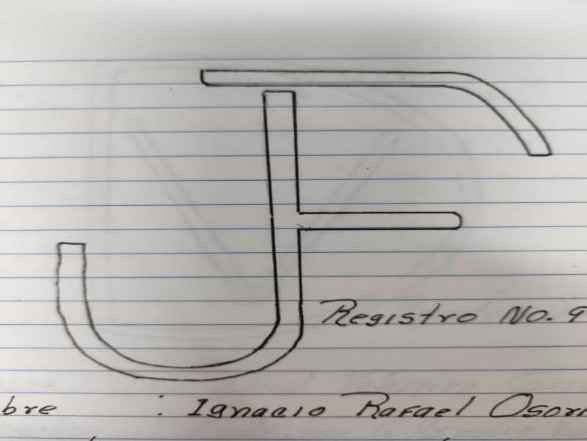 Registro No. 9
bre : Ignacio Rafael Osor